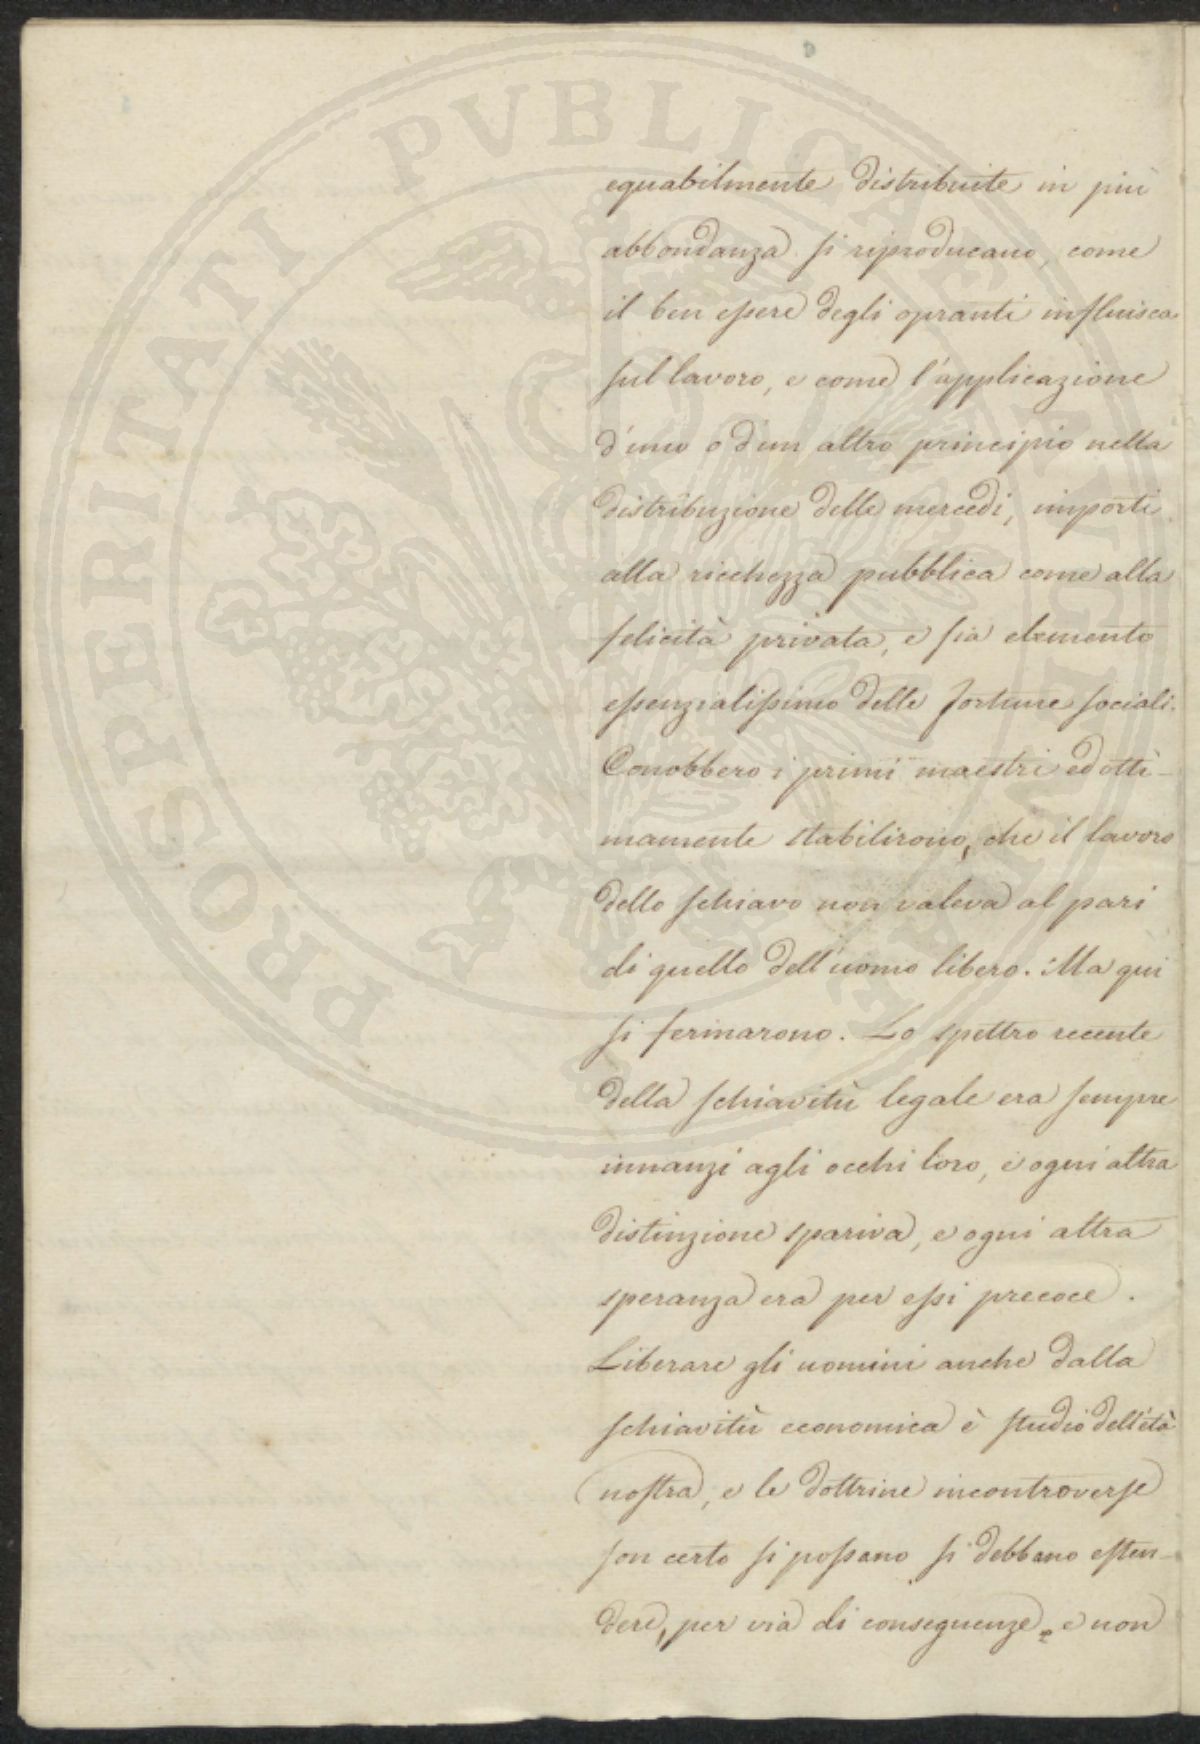 PROSPERITATI PVBLICAE AVGENDAE
equabilmente distribuite in più
abbondanza si riproducano, come
il ben essere degli opranti influisca
sul lavoro, e come l'applicazione
d'uno o d'un altro principio nella
distribuzione delle mercedi, importi
alla ricchezza pubblica come alla
felicità privata, e sia elemento
essenzialissimo delle fortune sociali.
Conobbero i primi maestri ed otti-
mamente stabilirono, che il lavoro
dello schiavo non valeva al pari
di quello dell'uomo libero. Ma qui
si fermarono. Lo spettro recente
della schiavitù legale era sempre
innanzi agli occhi loro, e ogni altra
distinzione spariva, e ogni altra
speranza era per essi precoce.
Liberare gli uomini anche dalla
schiavitù economica è studio dell'età
nostra, e le dottrine incontroverse
son certo si possano si debbano esten-
dere, per via di conseguenze, e non